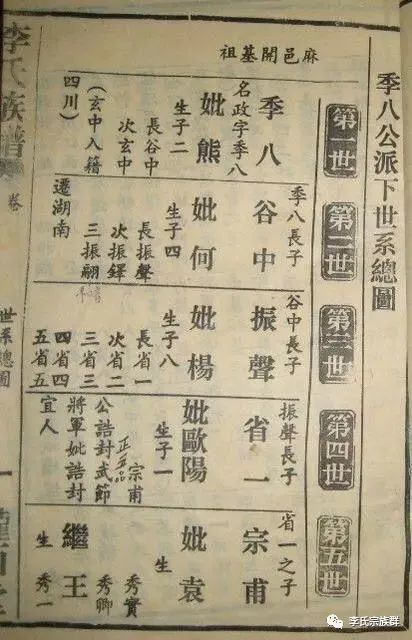 季八公派下世系總圖
第一世
第二世
第三世
第四世
第五世
麻邑開基祖
季八
名政字季八
妣熊
生子二
長谷中
次玄中
(玄中入籍
四川)
季八長子
谷中
妣何
生子四
長振聲
次振鐸
三振翮
遷湖南
谷中長子
振聲
妣楊
生子八
長省一
次省二
三省三
四省四
五省五
振聲長子
省一
妣歐陽
生子一
宗甫
正五品
公誥封武節
將軍妣誥封
宜人
省一之子
宗甫
妣袁
生
秀實
秀卿
秀一
繼王
生
李氏族譜
卷
世系總圖
一
李氏宗族群